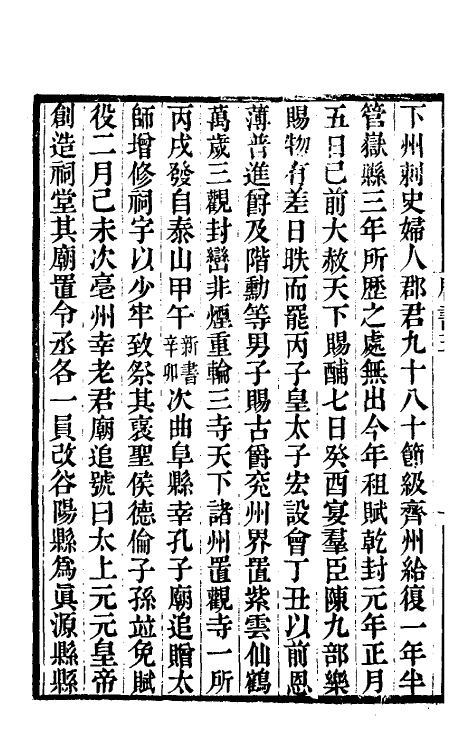 下州刺史婦人郡君九十八十節級齊州給復一年半
管嶽縣三年所歷之處無出今年租賦乾封元年正月
五日已前大赦天下賜酺七日癸酉宴羣臣陳九部樂
賜物有差日昳而罷丙子皇太子宏設會丁丑以前恩
薄普進爵及階勳等男子賜古爵兖州界置紫雲仙鶴
萬歲三觀封巒非煙重輪三寺天下諸州置觀寺一所
丙戌發自泰山甲午新書辛卯次曲阜縣幸孔子廟追贈太
師增修祠宇以少牢致祭其裒聖侯德倫子孫竝免賦
役二月己未次亳州幸老君廟追號曰太上元元皇帝
創造祠堂其廟置令丞各一員改谷陽縣爲眞源縣縣